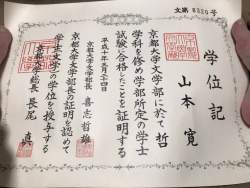 文第 8320号
学位記
山本 寛
京都大学文学部に於て 哲
学科を修め学部所定の学士
試験に合格したことを証明する
平成十年三月二十四日
京都大学文学部長 喜志哲雄
京都大学文学部長の証明を認めて
学士(文学)の学位を授与する
京都大学総長 長尾 真